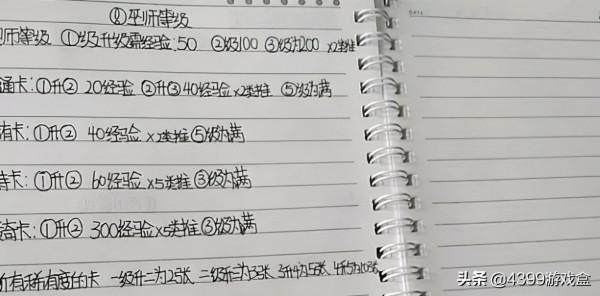 ⑧巫师等级
师等级 ①级升级需经验:50 ②级100 ③级为200 x2类推
通卡:①升② 20经验 ②升③40经验x2类推 ⑤级为满
有卡:①升② 40经验 x2类推⑤级为满
①升② 60经验 x5类推③级为满
奇卡:①升② 300经验x5类推③级为满
所有稀有度的卡 一级升二为2张 二级升三为3张 3升4为5张 4升5为10张
头条 @4399游戏盒